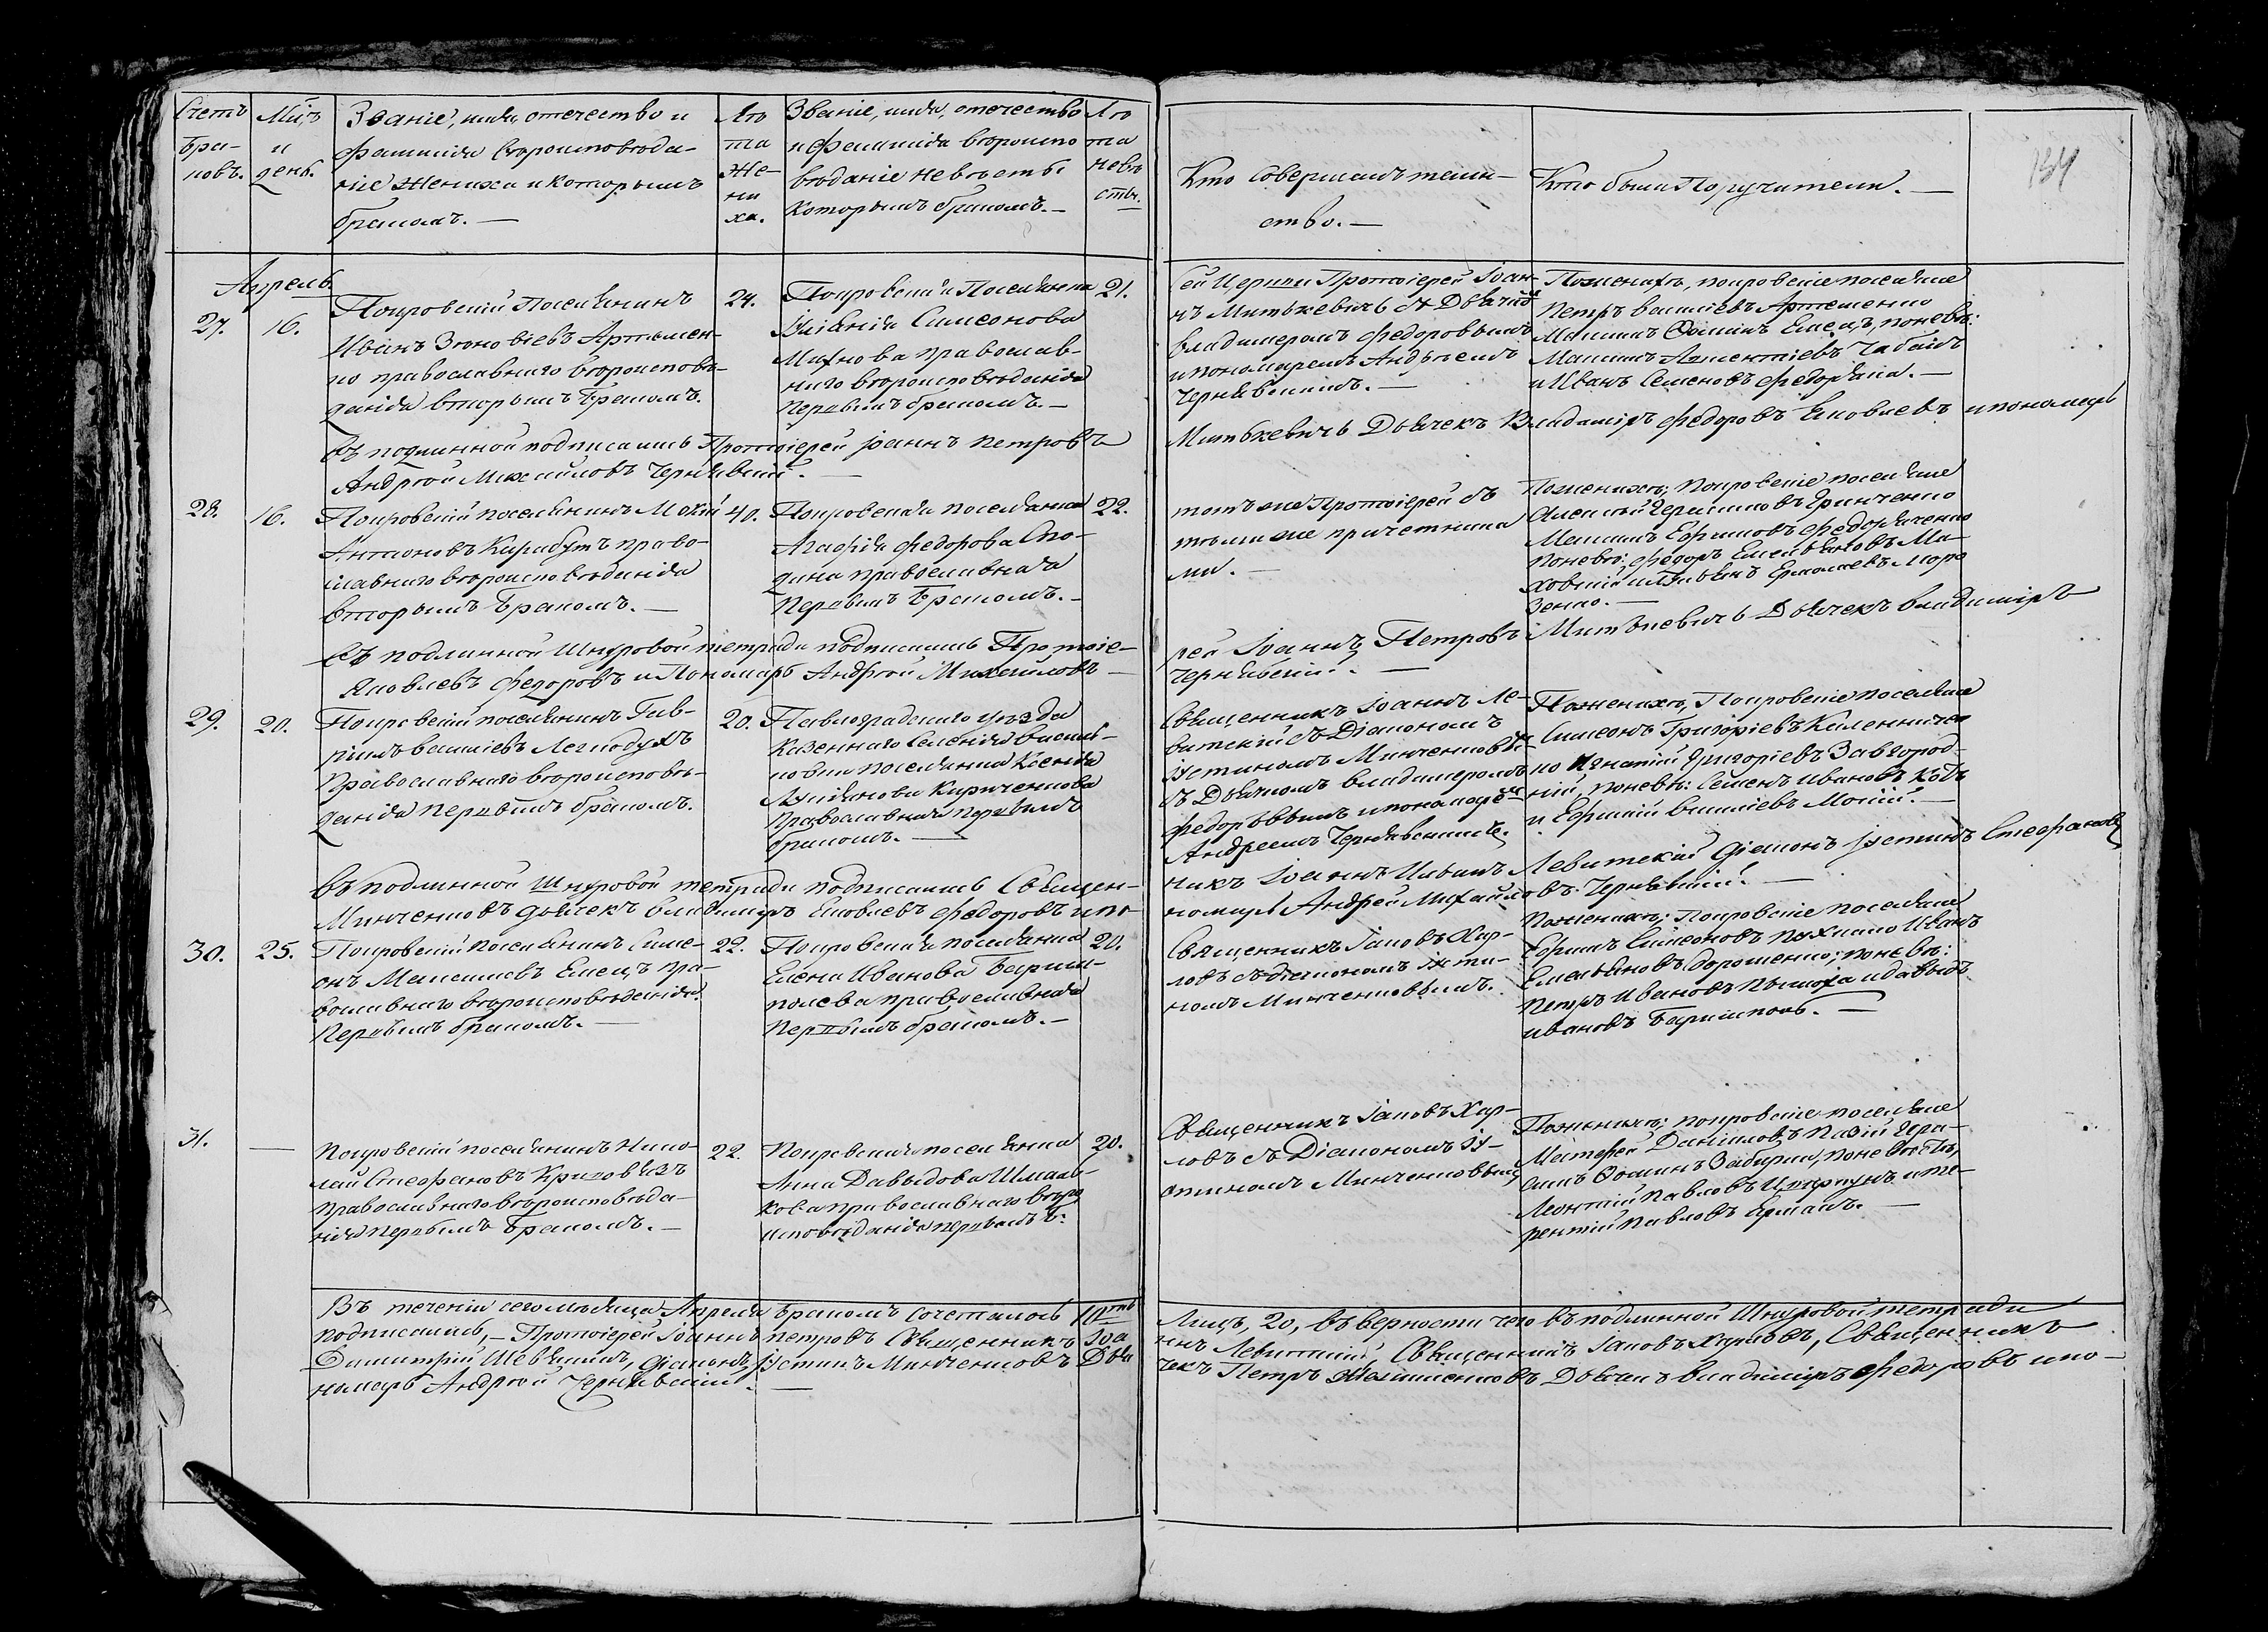 Счетъ
бра-
ковъ.
Мѣс.
и
день.
Званіе, имя, отечество и
фамилія вѣроисповѣда-
ніе жениха и которымъ
бракомъ. —
Лѣ
та
Же-
ни
ха.
Званіе, имя, отечество
и фамилія вѣроиспо
вѣданіе невѣсты
которымъ бракомъ. —
Лѣ
та
невѣ
сты.
Кто совершалъ таин-
ство. —
Кто были Поручители. —
134
Апрель
27.
16.
Покровскій Поселянинъ
Иванъ Зѣновіевъ Артемен-
ко православнаго вѣроисповѣ-
данія вторымъ бракомъ.
24.
Покровская Поселянка
Симеонова
Михнова православ-
наго вѣроисповѣданія
Первымъ бракомъ. —
21.
Сей Церкви Протоіерей Іоан-
нъ Митькевичь съ Дьячкомъ
владимеромъ федоровымъ
и пономаремъ Андреемъ
Чернявскимъ. —
По женихѣ, покровскіе поселяне
Петръ василіевъ Артеменко
Максимъ Фоминъ Емецъ, по невѣ:
Максимъ Чабанъ
и Иванъ Семеновъ федоряка. —
Въ подлинной подписались Протоіерей Іоаннъ Петровъ
Митькевичь Дьячекъ Владиміръ федоровъ Яковлевъ и пономарь
Андрей Михаиловъ Чернявскій. —
28.
16.
Покровскій поселянинъ Мокій
Антоновъ Карабутъ право-
славнаго вѣроисповѣданія
вторымъ бракомъ. —
40.
Покровская поселянка
Агафія федорова Ско-
дина православная
Первымъ бракомъ. —
22.
тотъ же Протоіерей съ
тѣми же причетника
ми. —
По женихѣ, покровскіе поселяне
Алексѣй Герасимовъ Гринченко
Максимъ Ефимовъ федоряченко
по невѣ: федоръ Емельяновъ Ма-
ховскій и Ермолаевъ Моро
зенко. —
Въ подлинной Шнуровой тетради подписались Протоіе-
рей Іоаннъ Петровъ Митькевичь Дьячекъ владиміръ
Яковлевъ федоровъ и Пономарь Андрей Михаиловъ
Чернявскій. —
29.
20.
Покровскій поселянинъ Гав-
ріилъ василіевъ Легкодухъ
Православнаго вѣроисповѣ-
данія первымъ бракомъ.
20.
Павлоградскаго уѣзда
Казеннаго Селенія василь-
ковки поселянка Ксенія
Кириченкова
Православная первымъ
бракомъ. —
Священникъ Іоаннъ Ле-
витскій съ Діакономъ
Іустиномъ Минченковымъ
съ Дьячкомъ владимеромъ
федоровымъ и пономаремъ
Андреемъ Чернявскимъ.
По женихѣ, Покровскіе поселяне
Симеонъ Григоріевъ Калениченко
но Игнатій Григоріевъ Завгород-
ній, по невѣ: Семенъ Ивановъ
и Ефимій василіевъ Мокій. —
Въ подлинной Шнуровой тетради подписались Священ-
никъ Іоаннъ Левитскій діаконъ Іустинъ Стефановъ
Минченковъ дьячекъ владиміръ Яковлевъ федоровъ и по-
номарь Андрей Михайловъ Чернявскій. —
30.
25.
Покровскій поселянинъ Симе-
онъ Максимовъ Емецъ пра-
вославнаго вѣроисповѣданія
Первымъ бракомъ. —
22.
Покровская поселянка
Елена Иванова Барыш-
полева православная
Первымъ бракомъ. —
20.
Священникъ Іаковъ Хар-
ловъ съ діакономъ Іусти-
номъ Минченковымъ.
По женихѣ; Покровскіе поселяне
Ефимъ Симеоновъ Иванъ
Емельяновъ дорошенко; по невѣ:
Петръ Ивановъ и давыдъ
ивановъ Барышполь. —
31.
—
Покровскій поселянинъ Нико-
лай Стефановъ Кривовязъ
православнаго вѣроисповѣда-
нія первымъ бракомъ. —
22.
Покровская поселянка
Анна Давыдова Шмаль-
кова православнаго вѣро
исповѣданія первымъ б:
20.
Священникъ Іаковъ Хар-
ловъ съ Діакономъ Іу-
стиномъ Минченковымъ
По женихѣ; покровскіе поселяне
Матфей Даниловъ Гера-
симъ Фоминъ по невѣстѣ,
Леонтій Павловъ и те-
рентій павловъ Ермакъ. —
Въ теченіи сего мѣсяца Апреля бракомъ сочеталось 10ть
Лицъ, 20, въ верности чего въ подлинной Шнуровой тетради
подписались, — Протоіерей Іоаннъ петровъ Священникъ Іоа
ннъ Левитскій, Священникъ Іаковъ Харловъ, Священникъ
Димитрій діаконъ Іустинъ Минченковъ Дья
чекъ Петръ Дьячекъ владиміръ федоровъ и по-
номарь Андрей Чернявскій. —